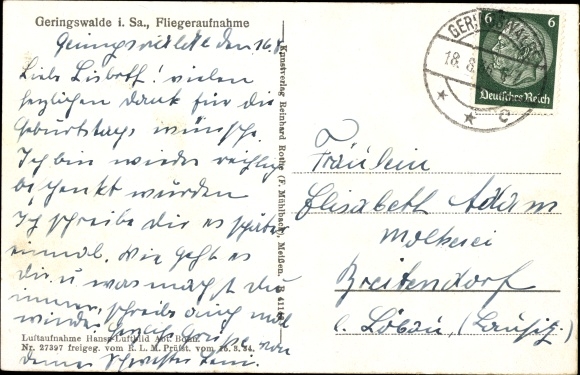 Geringswalde i. Sa., Fliegeraufnahme
Geringswalde den 16.8.
Liebe Lisbeth! vielen
herzlichen dank für die
Geburtstags wünsche.
Ich bin wieder reichlich
beschenkt wurden
Ich schreibe dir es später
einmal. Wie geht es
dir u was macht du
immer, schreibe auch mal
wieder. Herzl. Grüße von
deiner Schwester
Luftaufnahme Hansa-Luftbild Abt. Bohm.
Nr. 27397 freigeg. vom R. L. M. Prüfst. vom 26. 3. 34.
Kunstverlag Reinhard Rothe (F. Mühlbach), Meißen.
GERINGSWALDE
18. 8.
c
6 6
Deutsches Reich
Fräulein
Elisabeth Adam
Molkerei
Breitendorf
b. Löbau, (Lausitz)